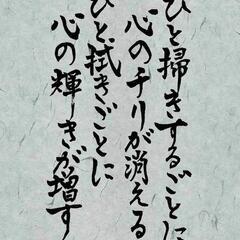 ひと掃きするごとに
心のチリが消える
ひと拭きごとに
心の輝きが増す